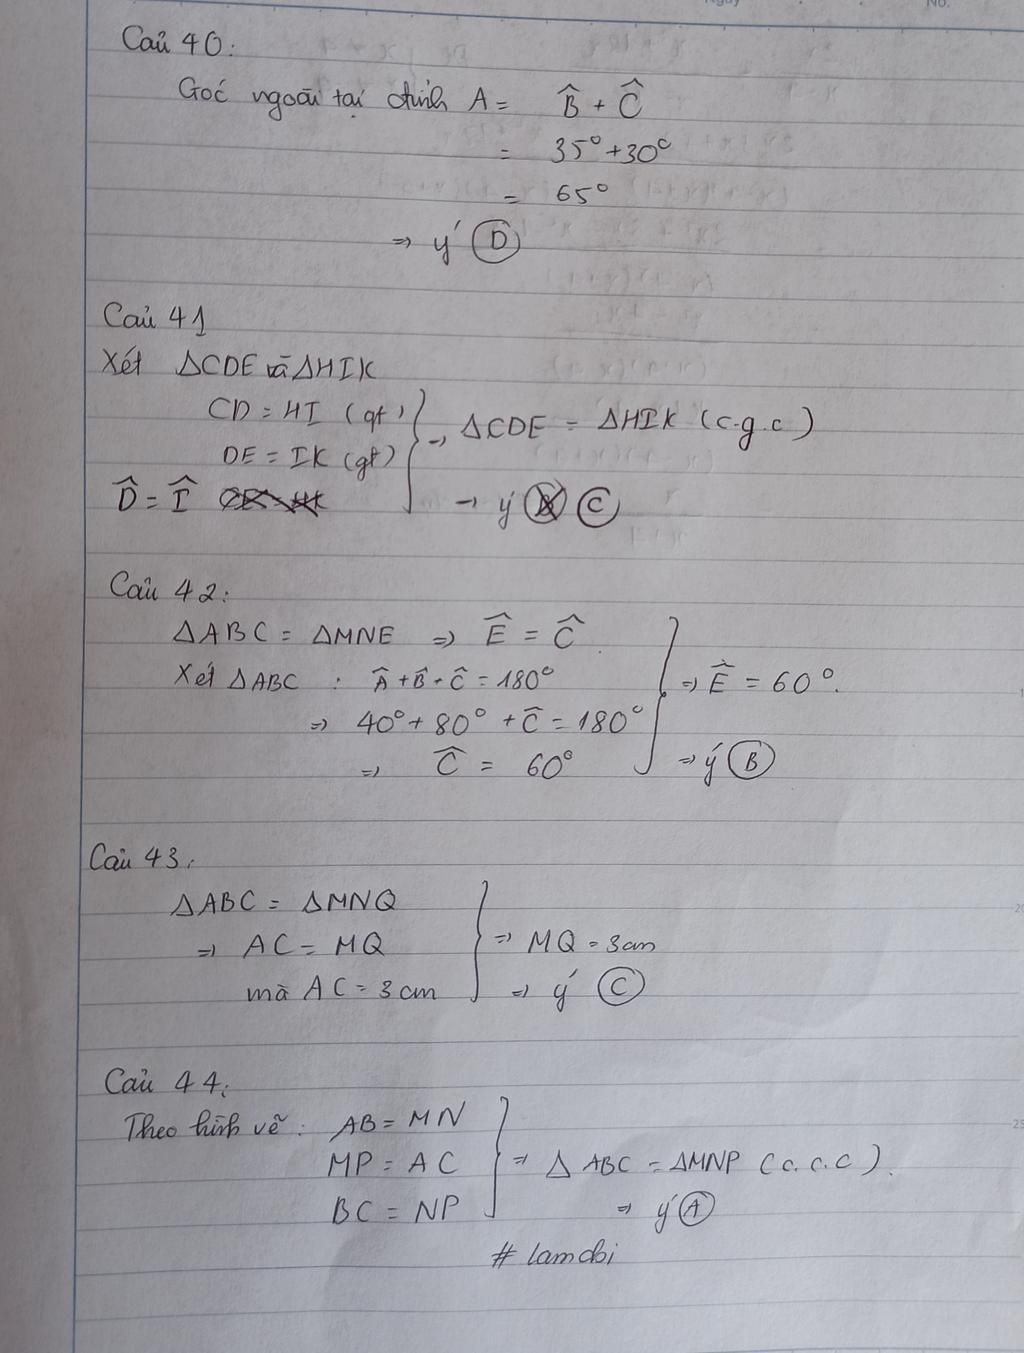 No.
Câu 40:
Góc ngoài tại đỉnh A = B̂ + Ĉ
= 35° + 30°
= 65°
⇒ ý D
Câu 41
Xét ΔCDE và ΔHIK
CD = HI (gt)
DE = IK (gt)
D̂ = Î
→ ΔCDE = ΔHIK (c.g.c)
→ ý C
Câu 42:
ΔABC = ΔMNE ⇒ Ê = Ĉ
Xét ΔABC : Â + B̂ + Ĉ = 180°
⇒ 40° + 80° + Ĉ = 180°
⇒ Ĉ = 60°
⇒ Ê = 60°.
⇒ ý B
Câu 43:
ΔABC = ΔMNQ
⇒ AC = MQ
mà AC = 3 cm
⇒ MQ = 3cm
⇒ ý C
Câu 44:
Theo hình vẽ: AB = MN
MP = AC
BC = NP
⇒ Δ ABC = ΔMNP (c.c.c).
⇒ ý A
# lamdbi